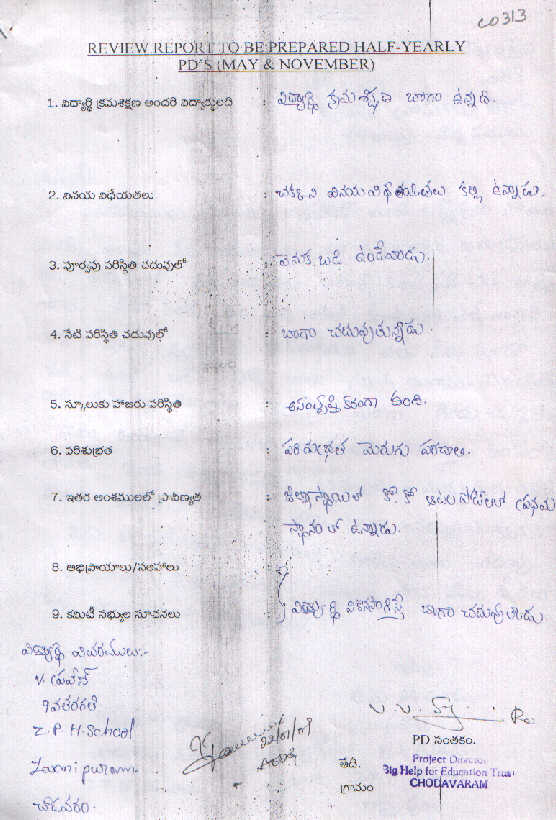 CO313
REVIEW REPORT TO BE PREPARED HALF-YEARLY
PD'S (MAY & NOVEMBER)
1. విద్యార్థి క్రమశిక్షణ అందరి విద్యార్థులది : విద్యార్థి క్రమశిక్షణ బాగా ఉన్నది.
2. వినయ విధేయతలు : చక్కని వినయ విధేయతలు కల్గి ఉన్నాడు.
3. పూర్వపు పరిస్థితి చదువులో : వెనుకబడి ఉండేవాడు.
4. నేటి పరిస్థితి చదువుల్లో : బాగా చదువుతున్నాడు.
5. స్కూలుకు హాజరు పరిస్థితి : ఉంది.
6. పరిశుభ్రత : పరిశుభ్రత మెరుగు పరచాలి.
7. ఇతర అంశములలో ప్రావీణ్యత : జిల్లాస్థాయిలో కో కో ఆటల పోటీలలో ప్రథమ
స్థానంలో ఉన్నాడు.
8. అభిప్రాయాలు/సలహాలు :
9. కమిటీ సభ్యుల సూచనలు : విద్యార్థి బాగా చదువుతాడు
విద్యార్థి వివరములు:-
Z.P.H.School
చోడవరం.
PD సంతకం.
తేది.
గ్రామం
Project Director
Big Help for Education Trust
CHODAVARAM